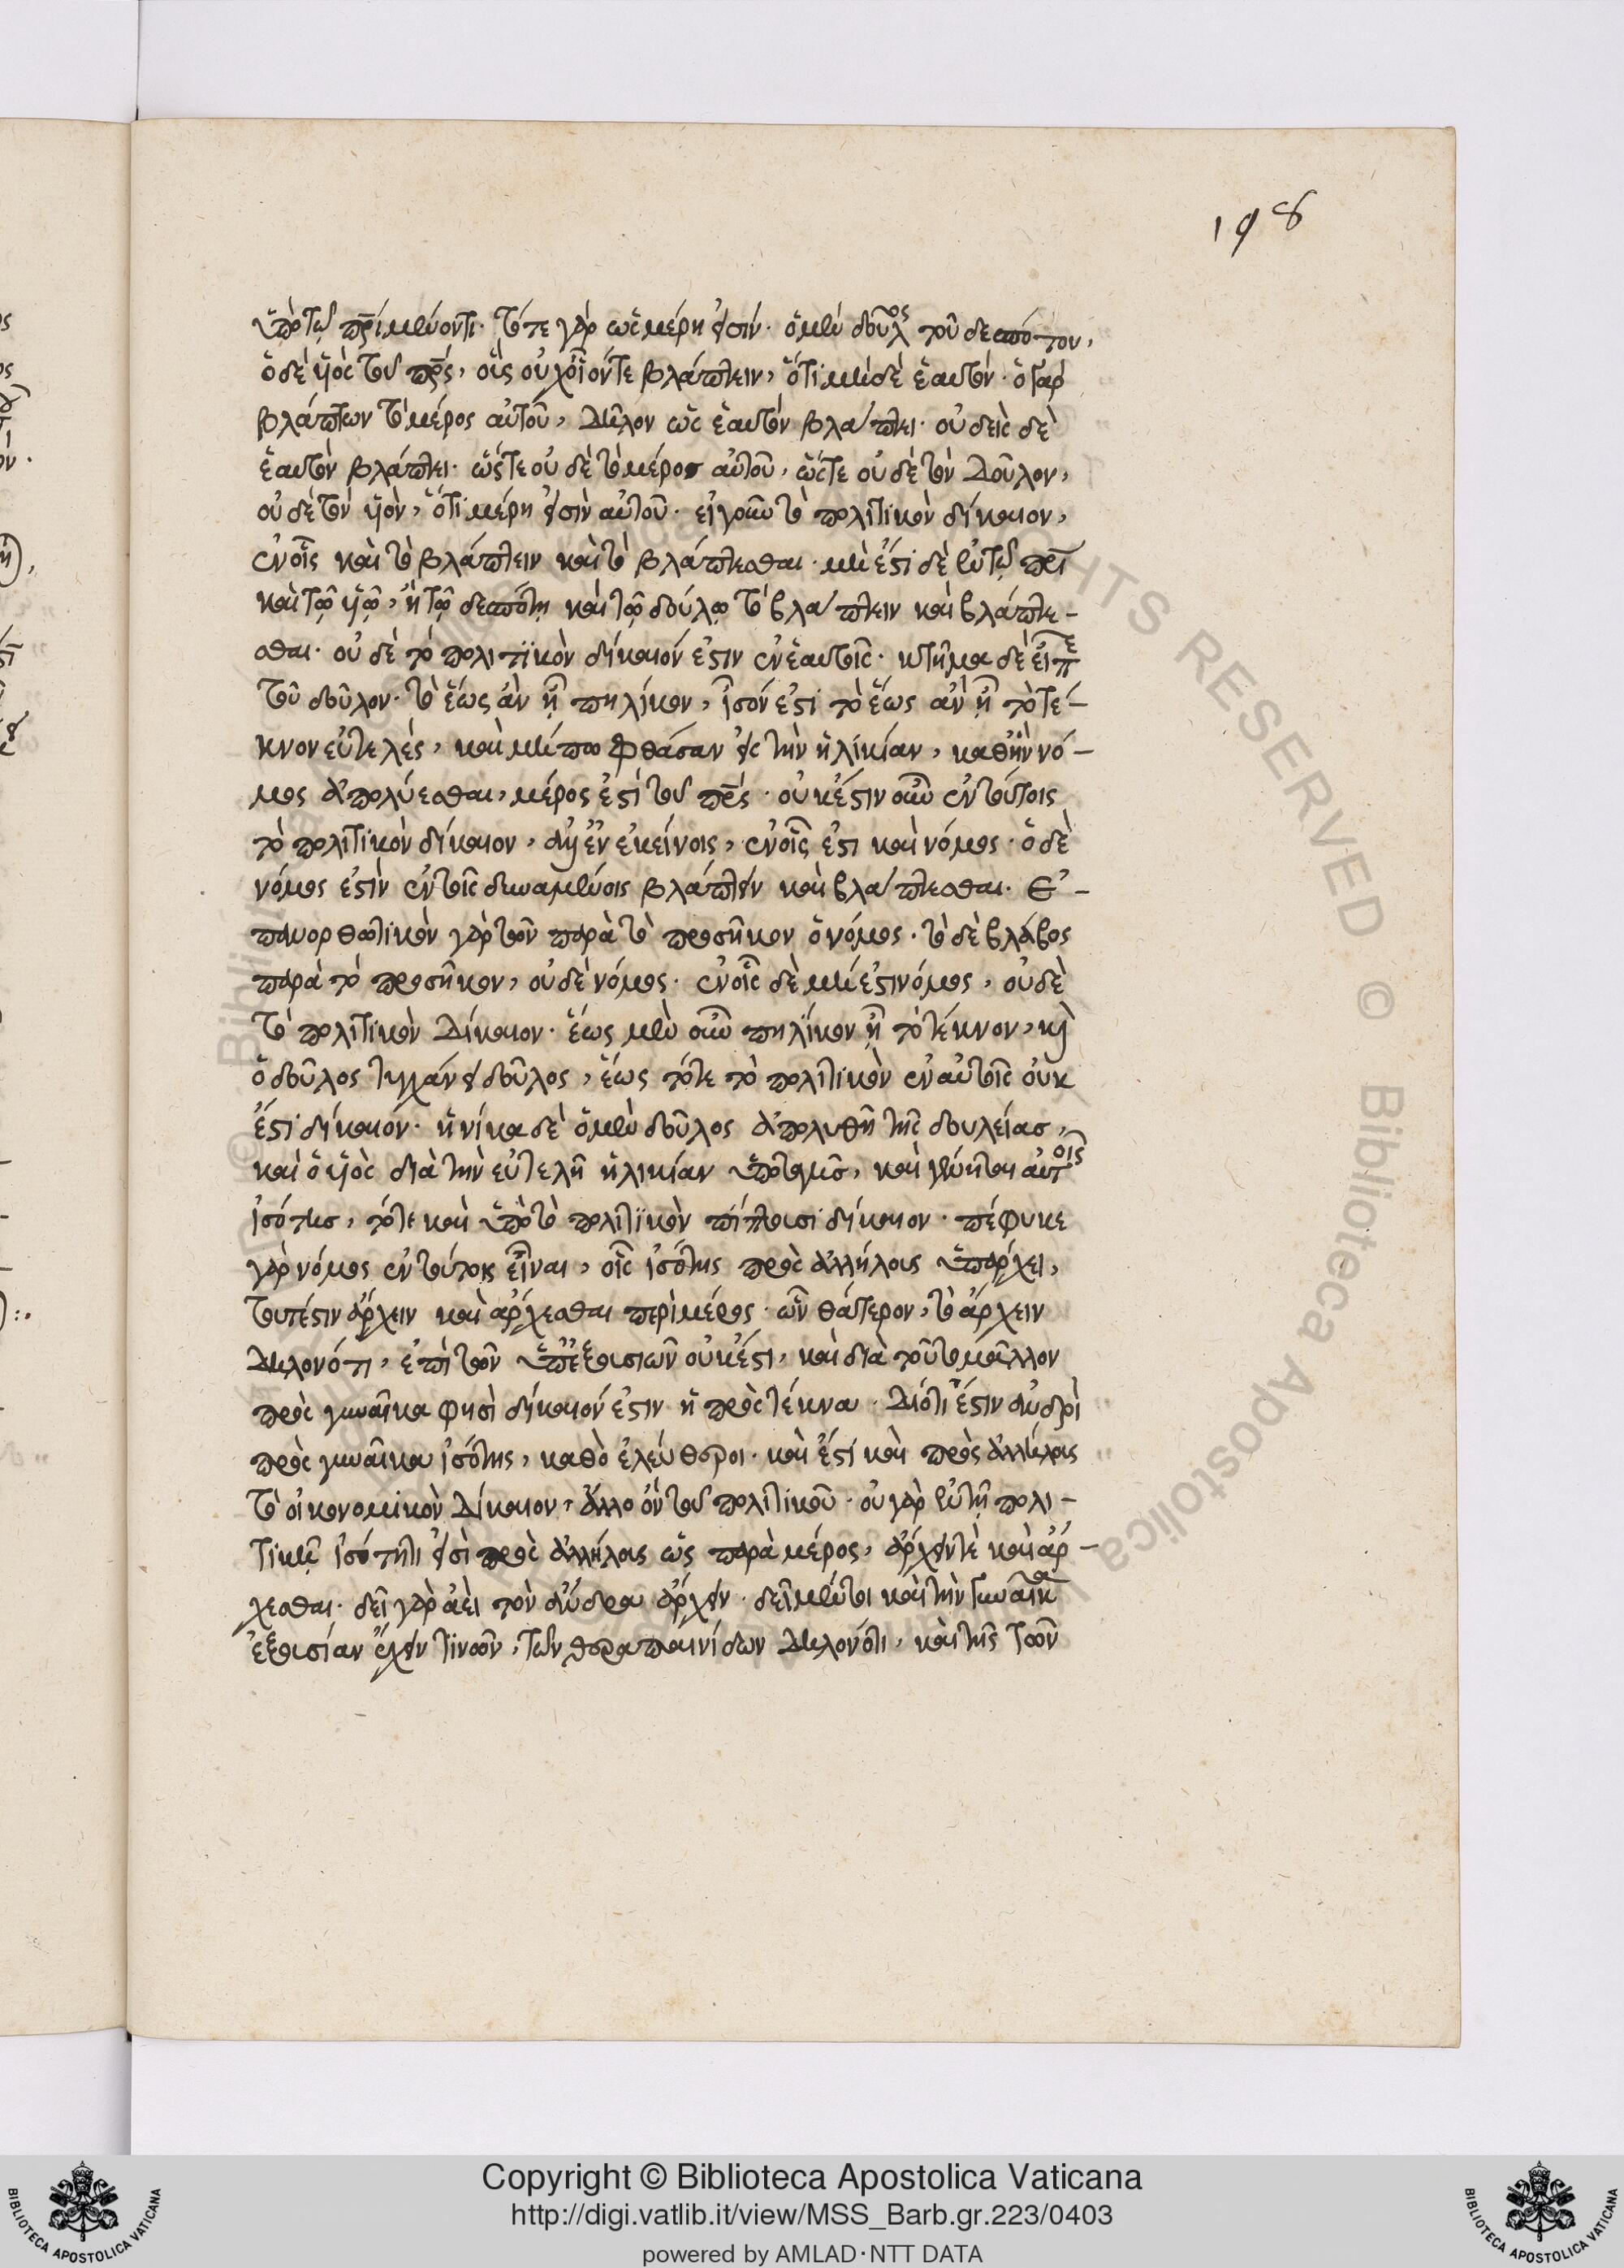 198
ὑπὸ τῷ πρι μένοντι. τότε γὰρ ὡς μέρη εἰσίν. ὁ μὲν δοῦλος τοῦ δεσπότου,
ὁ δὲ υἱὸς τοῦ πρς, οἷς οὐχ οἷόν τε βλάπτειν, ὅτι μὴ δὲ ἑαυτόν. ὁ γὰρ
βλάπτων τὸ μέρος αὐτοῦ, δῆλον ὡς ἑαυτὸν βλάπτει. οὐδεὶς δὲ
ἑαυτὸν βλάπτει. ὥστε οὐδὲ τὸ μέρος αὐτοῦ, ὥστε οὐδὲ τὸν δοῦλον,
οὐδὲ τὸν υἱὸν, ὅτι μέρη εἰσὶν αὐτοῦ. εἰ γοῦν τὸ πολιτικὸν δίκαιον,
ἐν οἷς καὶ τὸ βλάπτειν καὶ τὸ βλάπτεσθαι. μὴ ἔστι δὲ ἐν τῷ πρι
καὶ τῷ υἱῷ, ἢ τῷ δεσπότῃ καὶ τῷ δούλῳ τὸ βλάπτειν καὶ βλάπτε-
σθαι. οὐδὲ τὸ πολιτικὸν δίκαιόν ἐστιν ἐν ἑαυτοῖς. κτῆμα δὲ εἶπε
τὸν δοῦλον. τὸ ἕως ἂν ᾖ πηλίκον, ἴσον ἐστὶ τὸ ἕως ἂν ᾖ τὸ τέ-
κνον εὐτελές, καὶ μήπω φθάσαν εἰς τὴν ἡλικίαν, καθ' ἣν νό-
μος ἀπολύεσθαι, μέρος ἐστὶ τοῦ πρς. οὐκ ἔστιν οὖν ἐν τούτοις
τὸ πολιτικὸν δίκαιον, ἀλλ' ἐν ἐκείνοις, ἐν οἷς ἐστι καὶ νόμος. ὁ δὲ
νόμος ἐστὶν ἐν τοῖς δυναμένοις βλάπτειν καὶ βλάπτεσθαι. Ἐ-
πανορθωτικὸν γὰρ τῶν παρὰ τὸ προσῆκον ὁ νόμος. τὸ δὲ βλάβος
παρὰ τὸ προσῆκον, οὐδὲ νόμος. ἐν οἷς δὲ μή ἐστι νόμος, οὐδὲ
τὸ πολιτικὸν δίκαιον. ἕως μὲν οὖν πηλίκον ᾖ τὸ τέκνον, καὶ
ὁ δοῦλος τυγχάνει δοῦλος, ἕως τότε τὸ πολιτικὸν ἐν αὐτοῖς οὐκ
ἔστι δίκαιον. ἡνίκα δὲ ὁ μὲν δοῦλος ἀπολυθῇ τῆς δουλείας,
καὶ ὁ υἱὸς διὰ τὴν εὐτελῆ ἡλικίαν ὑποταγῆς, καὶ γένηται αὐτοῖς
ἰσότης, τότε καὶ ὑπὸ τὸ πολιτικὸν πίπτουσι δίκαιον. πέφυκε
γὰρ νόμος ἐν τούτοις εἶναι, οἷς ἰσότης πρὸς ἀλλήλους ὑπάρχει,
τουτέστιν ἄρχειν καὶ ἄρχεσθαι περὶ μέρος. ὧν θάτερον, τὸ ἄρχειν
δηλονότι, ἐπὶ τῶν ὑπεξουσίων οὐκ ἔστι, καὶ διὰ τοῦτο μᾶλλον
πρὸς γυναῖκα φησὶ δίκαιόν ἐστιν ἢ πρὸς τέκνα. διότι ἔστιν ἀνδρὶ
πρὸς γυναῖκα ἰσότης, καθὸ ἐλεύθεροι. καὶ ἔστι καὶ πρὸς ἀλλήλοις
τὸ οἰκονομικὸν δίκαιον, ἄλλο ὂν τοῦ πολιτικοῦ. οὐ γὰρ ἐν τῇ πολι-
τικῇ ἰσότητι εἰσὶ πρὸς ἀλλήλοις ὡς παρὰ μέρος, ἄρχειν τὲ καὶ ἄρ-
χεσθαι. δεῖ γὰρ ἀεὶ τὸν ἄνδρα ἄρχειν. δεῖ μέντοι καὶ τὴν γυναῖκα
ἐξουσίαν ἔχειν τινῶν, τῶν θεραπαινίδων δηλονότι, καὶ τῆς τῶν
Copyright © Biblioteca Apostolica Vaticana
http://digi.vatlib.it/view/MSS_Barb.gr.223/0403
powered by AMLAD·NTT DATA